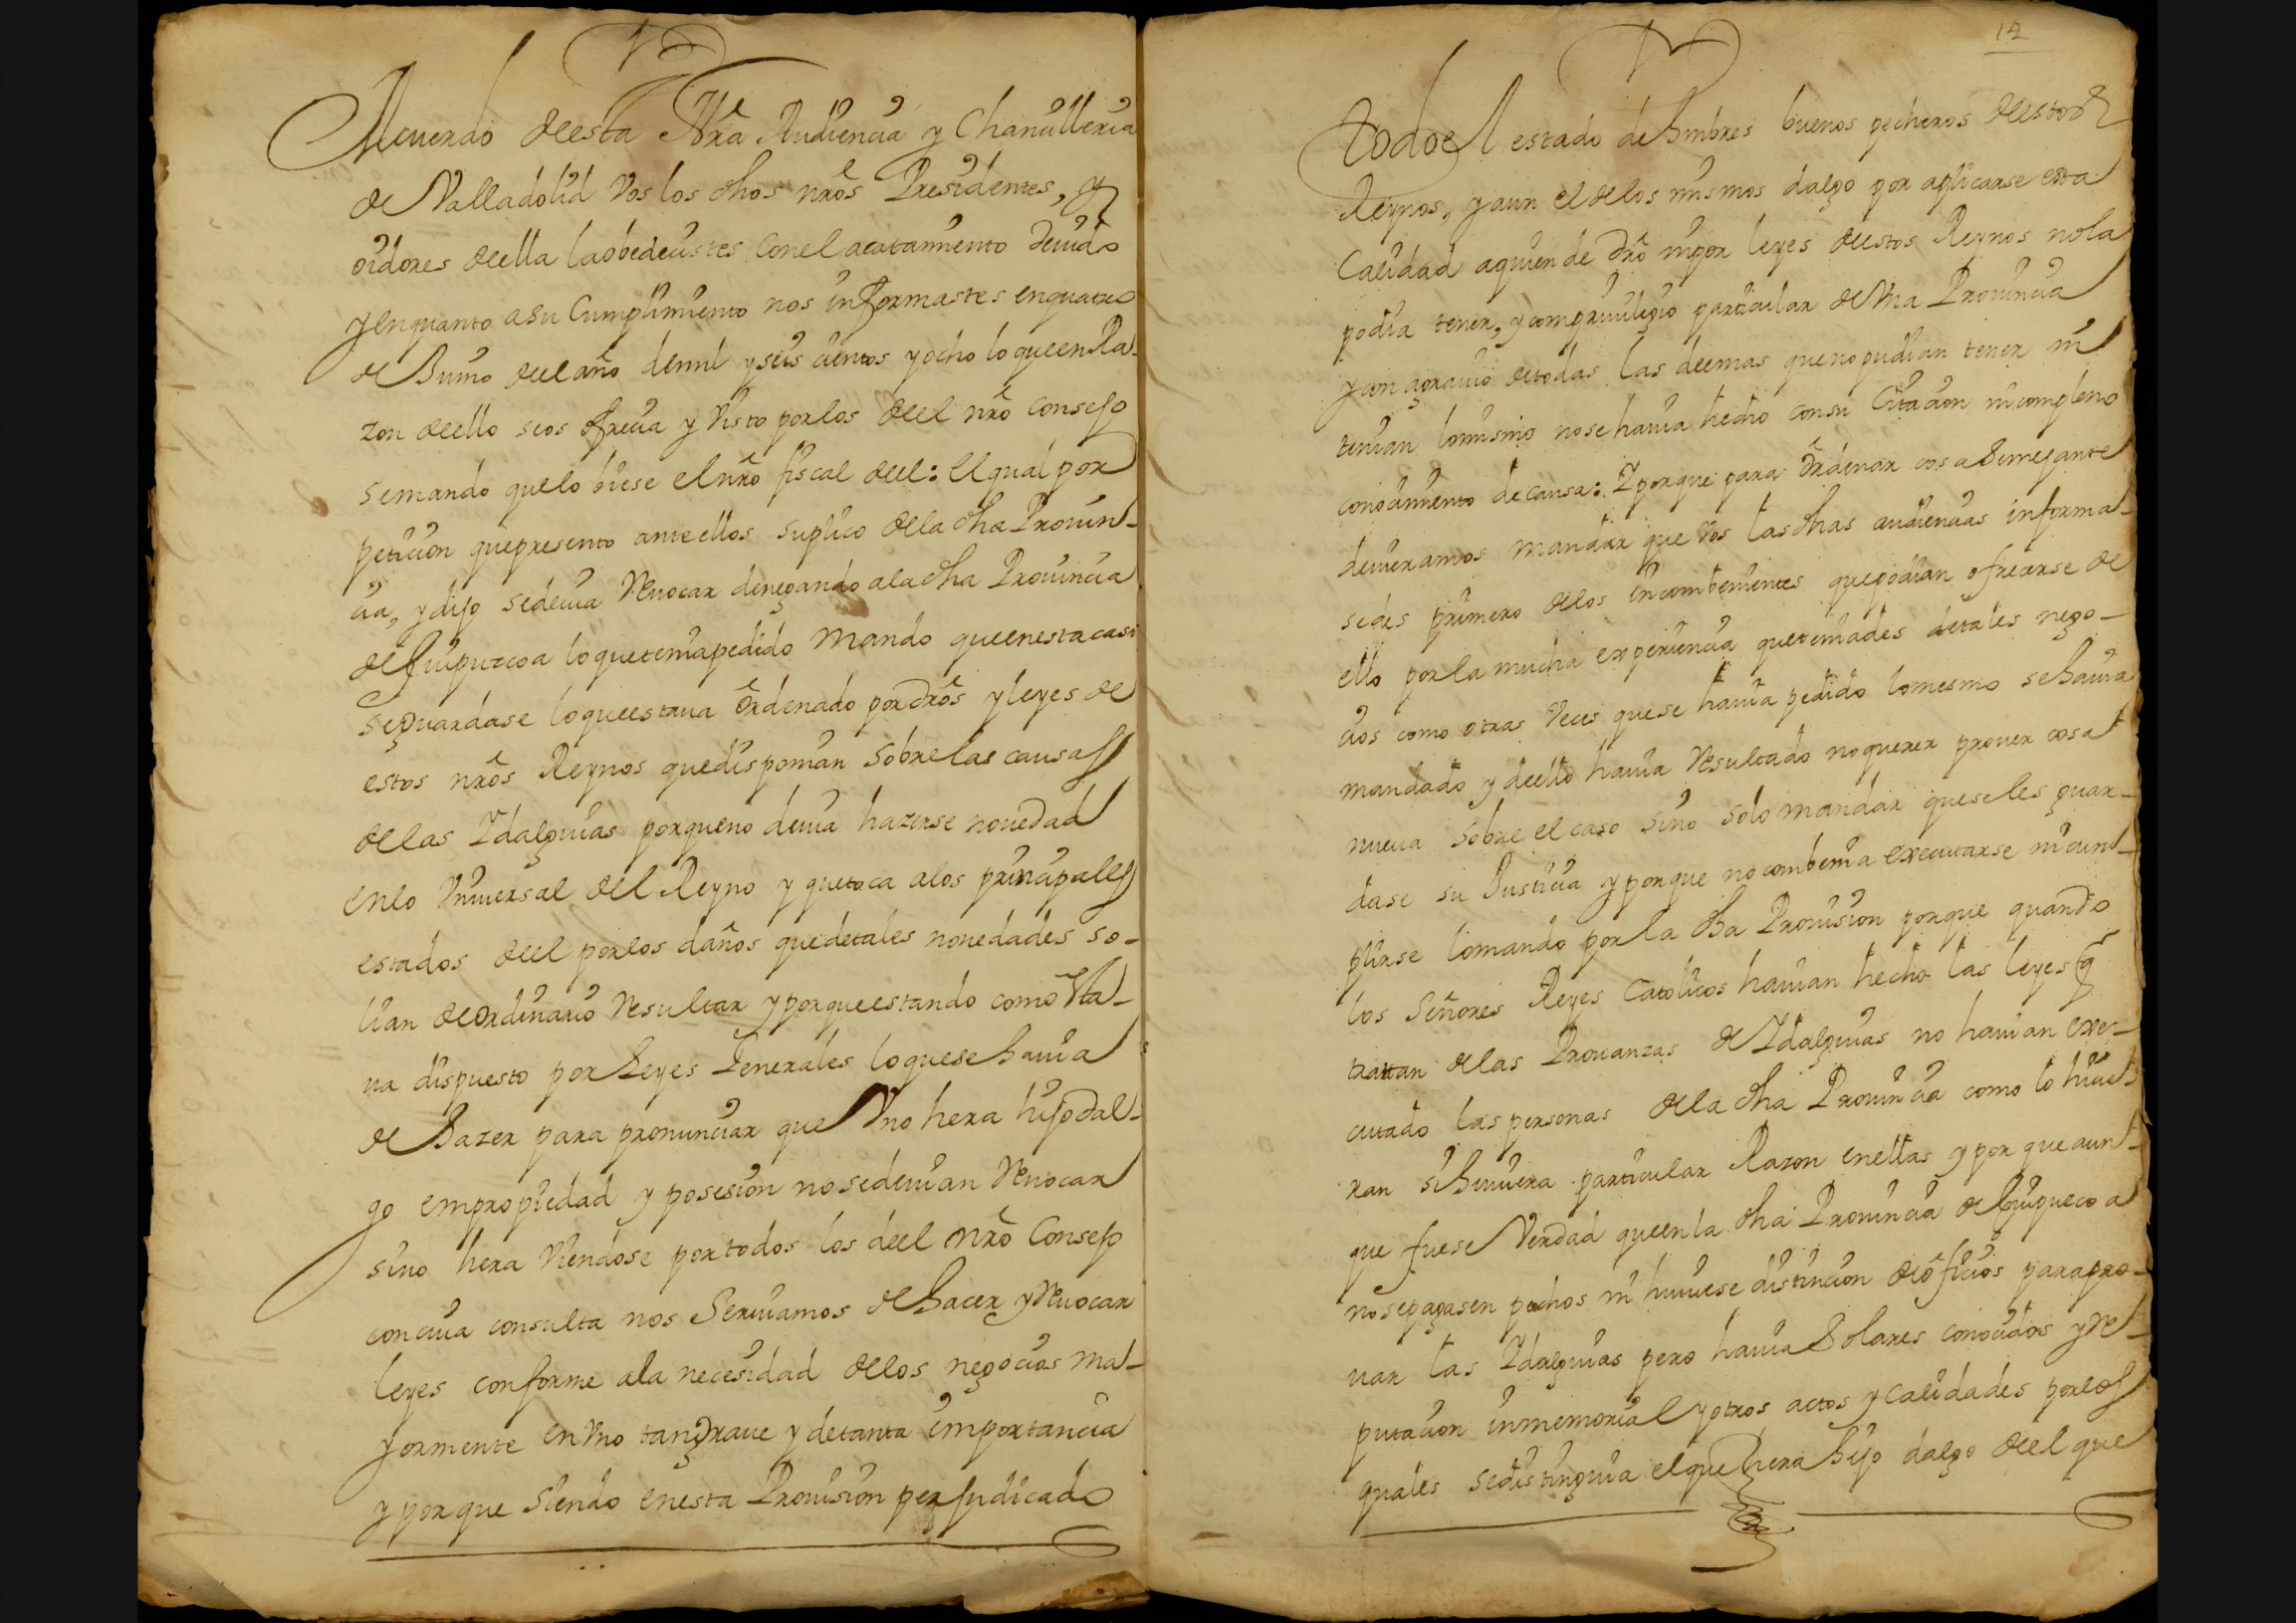 Acuerdo deesta Nrã Audiencia y Chancilleria
de Valladolid Vos los dhos nrõs Presidentes, y
oidores deella laobedecistes Conel acatamiento deuido
yenquanto asu Cumplimiento nos informastes enquatro
de Junio deel año demil yseis cientos yocho loqueenRa-
zon deello seos ofrecia y Visto porlos deel nrõ consejo
semando quelo biese elnrõ fiscal deel: Elqual por
peticion quepresento anteellos suplico dela dha Prouin-
cia, ydijo sedeuia Reuocar denegando ala dha Prouincia
de Guipuzcoa loqueteniapedido Mando queenestacaso
seguardase loqueestaua ordenado por drõs yleyes de
estos nrõs Reynos quedisponian sobrelas causas
delas Ydalguias porqueno deuia hazerse nouedad
enlo Vniuersal del Reyno y quetoca alos principales
estados deel porlos daños quedetales nouedades so-
lian deordinario Resultar yporqueestando como sta-
ua dispuesto por Leyes Generales loquese hauia
de hazer para pronunciar que Vno hera hijodal-
go empropiedad y posesion nosedeuian Reuocar
sino hera Viendose portodos los deel nrõ Consejo
concuia consulta nos Seruiamos de hacer yReuocar
leyes conforme ala necesidad delos negocios ma-
yormente enVno tangraue y detanta importancia
y porque siendo enesta Prouision perjudicado
14
Todoel estado de hombres buenos pecheros deestos
Reynos, yaun eldelos mismos dalgo por aplicarse esta
Calidad aquiende drõ nipor leyes deestos Reynos nola
podia tener, ycompriuilegio particular de Vna Prouincia
yconagrauio detodas las deemas quenopudian tener ni
tenian lomismo nosehauia hecho consu Citacion nicompleno
conocimiento decausa: Yporque para ordenar cosa semejante
deuieramos mandar que Vos lasdhas audiencias informa-
sedes primero delos incombenientes quepodian ofrecerse de
ello porla mucha experiencia queteniades detales nego-
cios como otras Veces quese hauia pedido lomesmo sehauia
mandado ydeello hauia Resultado noquerer prouer cosa
nueua sobre el caso sino solo mandar queseles guar-
dase su Justicia yporque nocombenia executarse nicun-
plirse lomando porla dha Prouision porque quando
los Señores Reyes Catolicos hauian hecho las leyes q
trattan delas Prouanzas de Ydalguias no hauian exe-
cutado las personas dela dha Prouincia como lo hicie-
ran si huuiera particular Razon enellas yporqueaun-
que fuese Verdad queenla dha Prouincia de Guipuzcoa
nosepagasen pechos ni huuiese distincion deoficios parapro-
uar las Ydalguias pero hauia Solares conocidos yRe-
putacion inmemorial yotros actos yCalidades porlos
quales sedistinguia elque hera hijo dalgo deel que